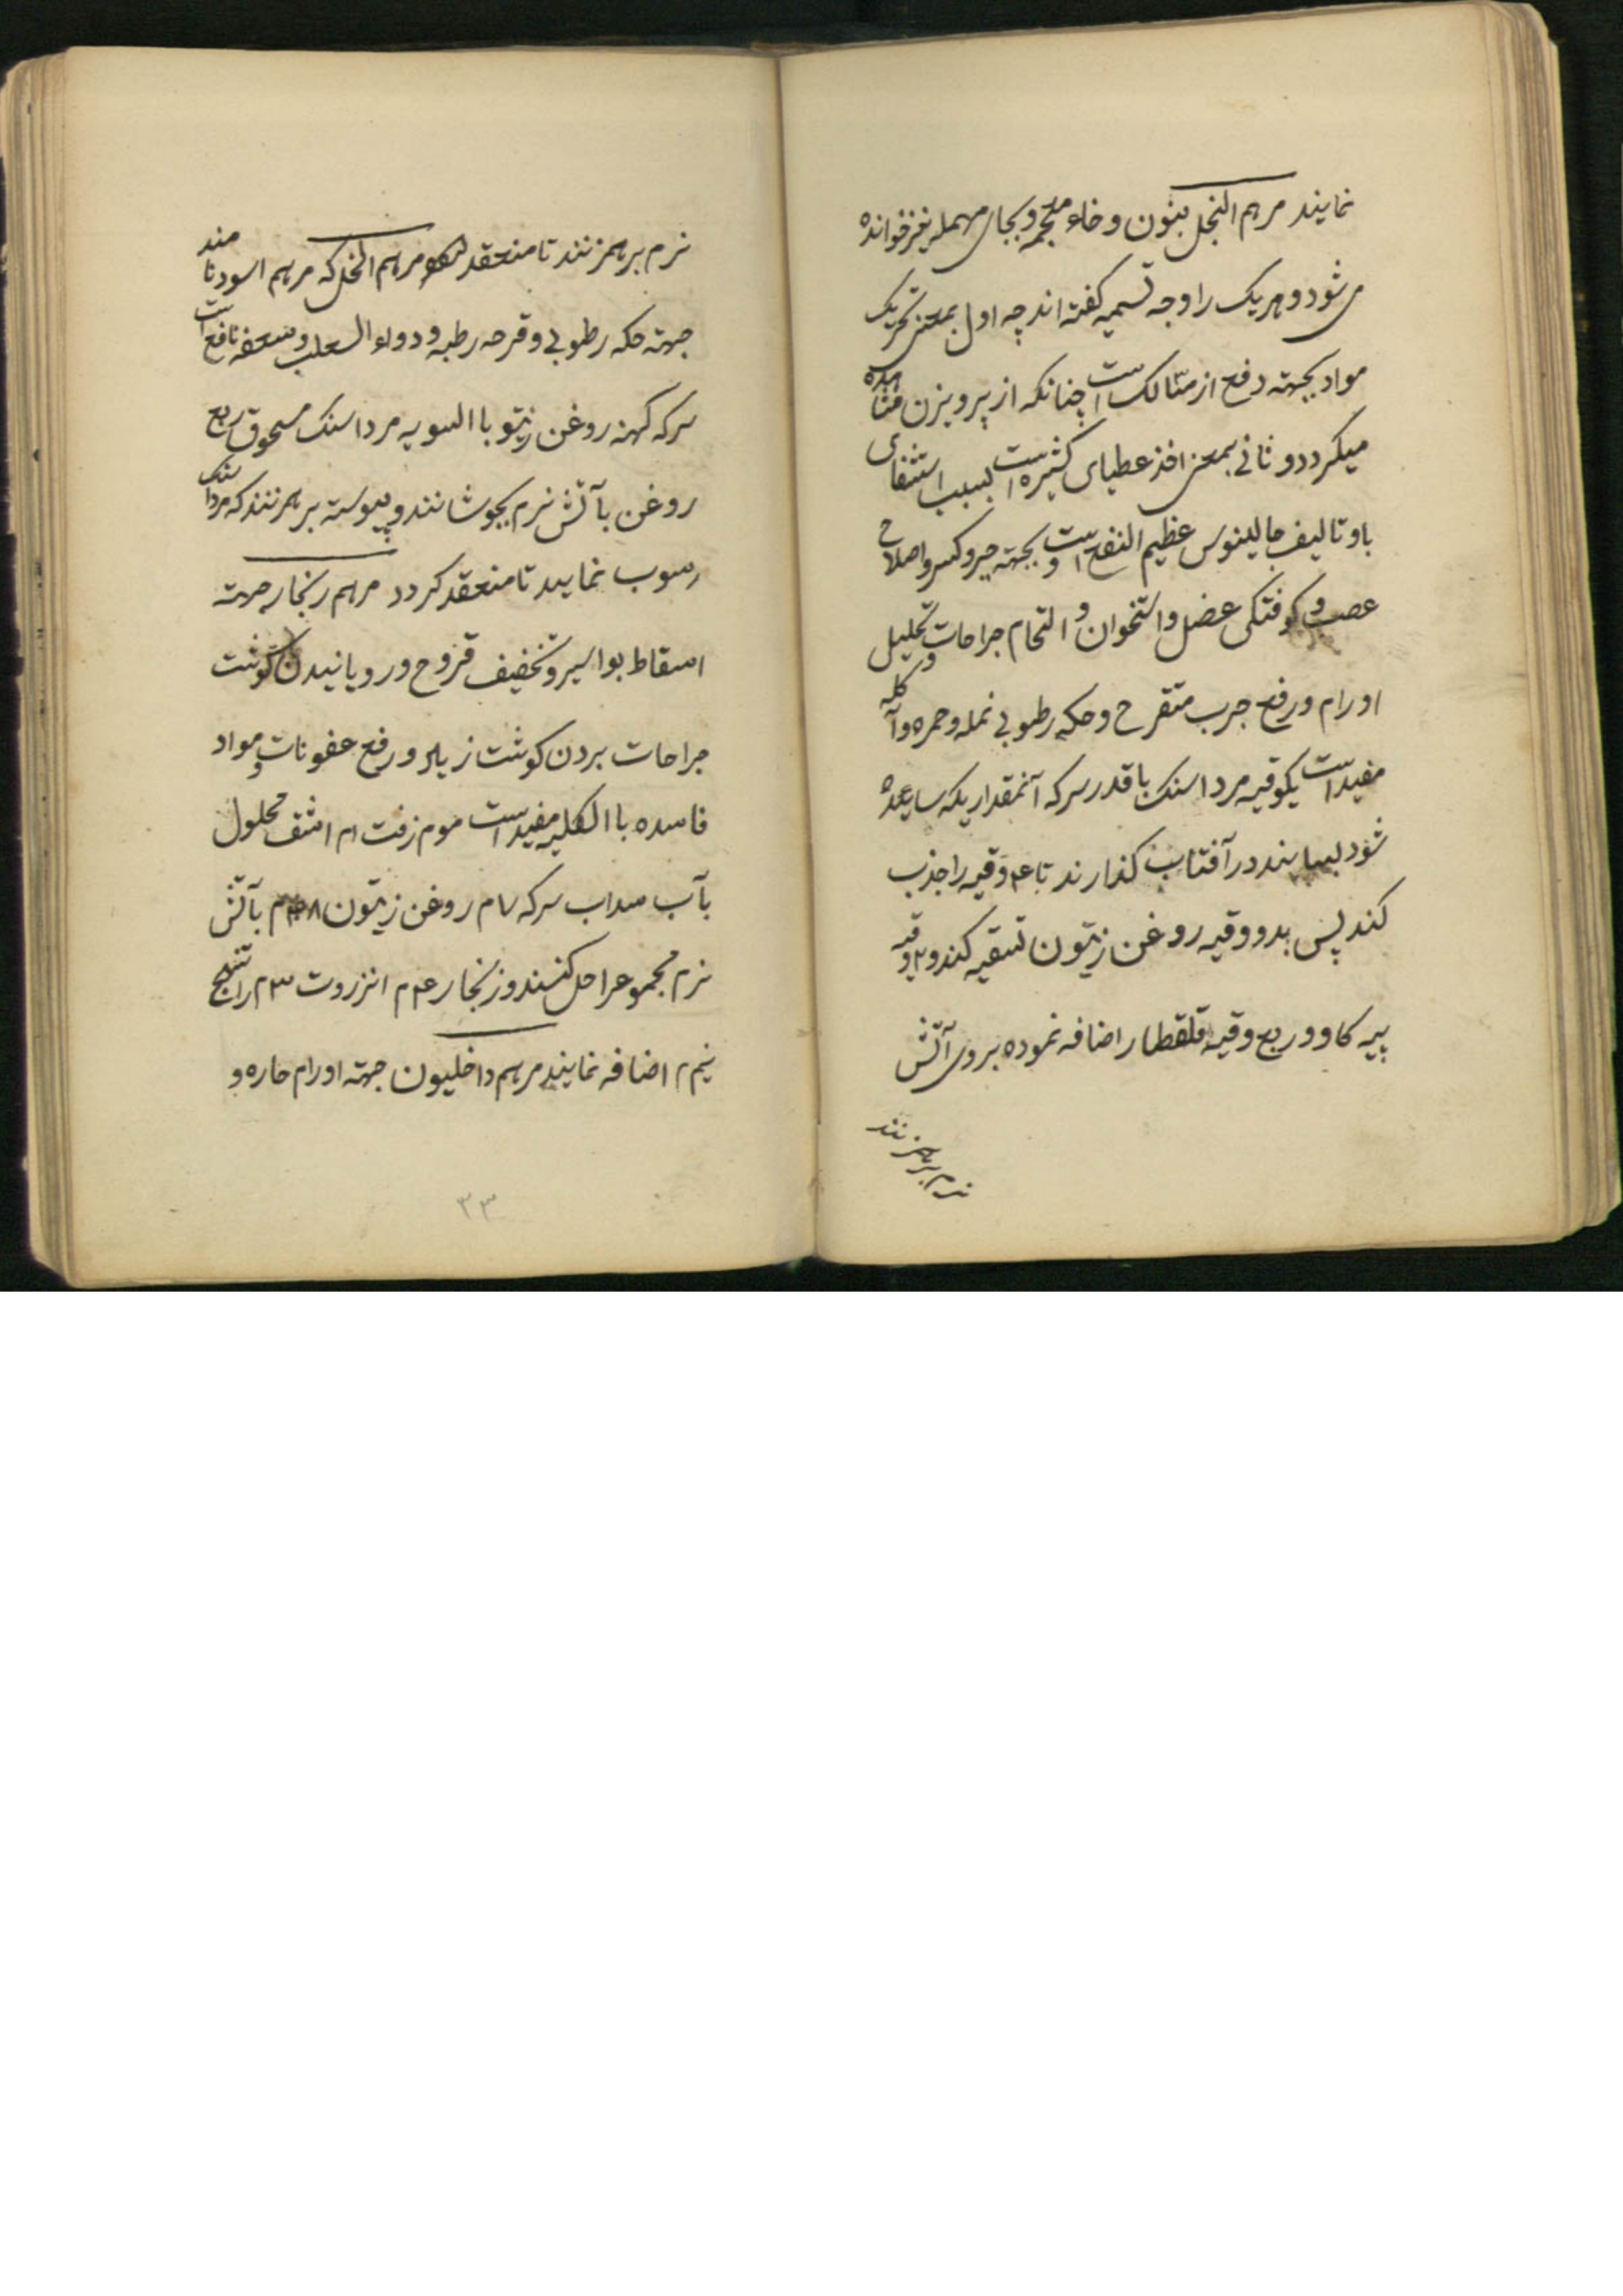 نمایند مرهم النخل بنون و خاء معجمه و بجای مهمله نیز خوانده
می شود و هر یک را وجه تسمیه گفته اند چه اول بمعنی تحریک
مواد بجهته دفع از مسالک است چنانکه از پرویزن مشاهده
میکردد و ثانی بمعنی اخذ عطیای کثیره است بسبب استشفای
باو تالیف جالینوس عظیم النفع است و بجهته جبر و کسر و اصلاح
عصب و کوفتکی عضل و استخوان و التحام جراحات و تحلیل
اورام و رفع جرب متقرح و حکه رطوبی نمله و حمره و آکله
مفید است یکوقیه مرداسنک با قدر سرکه آنمقداریکه ساییده
شود بسایند در آفتاب کذارند تا ۴ وقیه را جذب
کند پس بدو وقیه روغن زیتون تسقیه کند و ۲ وقیه
پیه کاو و ربع وقیه قلقطار اضافه نموده بروی آتش
نرم برهمزنند
نرم برهمزنند تا منعقد شود مرهم الخل که مرهم اسود نامند
جهته حکه رطوبی و قرحه رطبه و دواء الثعلب و سعفه نافع است
سرکه کهنه روغن زیتو باالسویه مرداسنک مسحوق ربع
روغن بآتش نرم بجوشانند و پیوسته برهمزنند که مرداسنک
رسوب نمایند تا منعقد کردد مرهم زنجار جهته
اسقاط بواسیر و تخفیف قروح و رویانیدن کوشت
جراحات بردن کوشت زیاد و رفع عفونات و مواد
فاسده باالکلیه مفید است موم زفت ام اشق محلول
بآب سداب سرکه ۷م روغن زیتون ۴۸م بآتش
نرم مجموعرا حل کنند و زنجار ۴م انزروت ۳م راتینج
نیم م اضافه نمایند مرهم داخلیون جهته اورام حاره و
۳۳